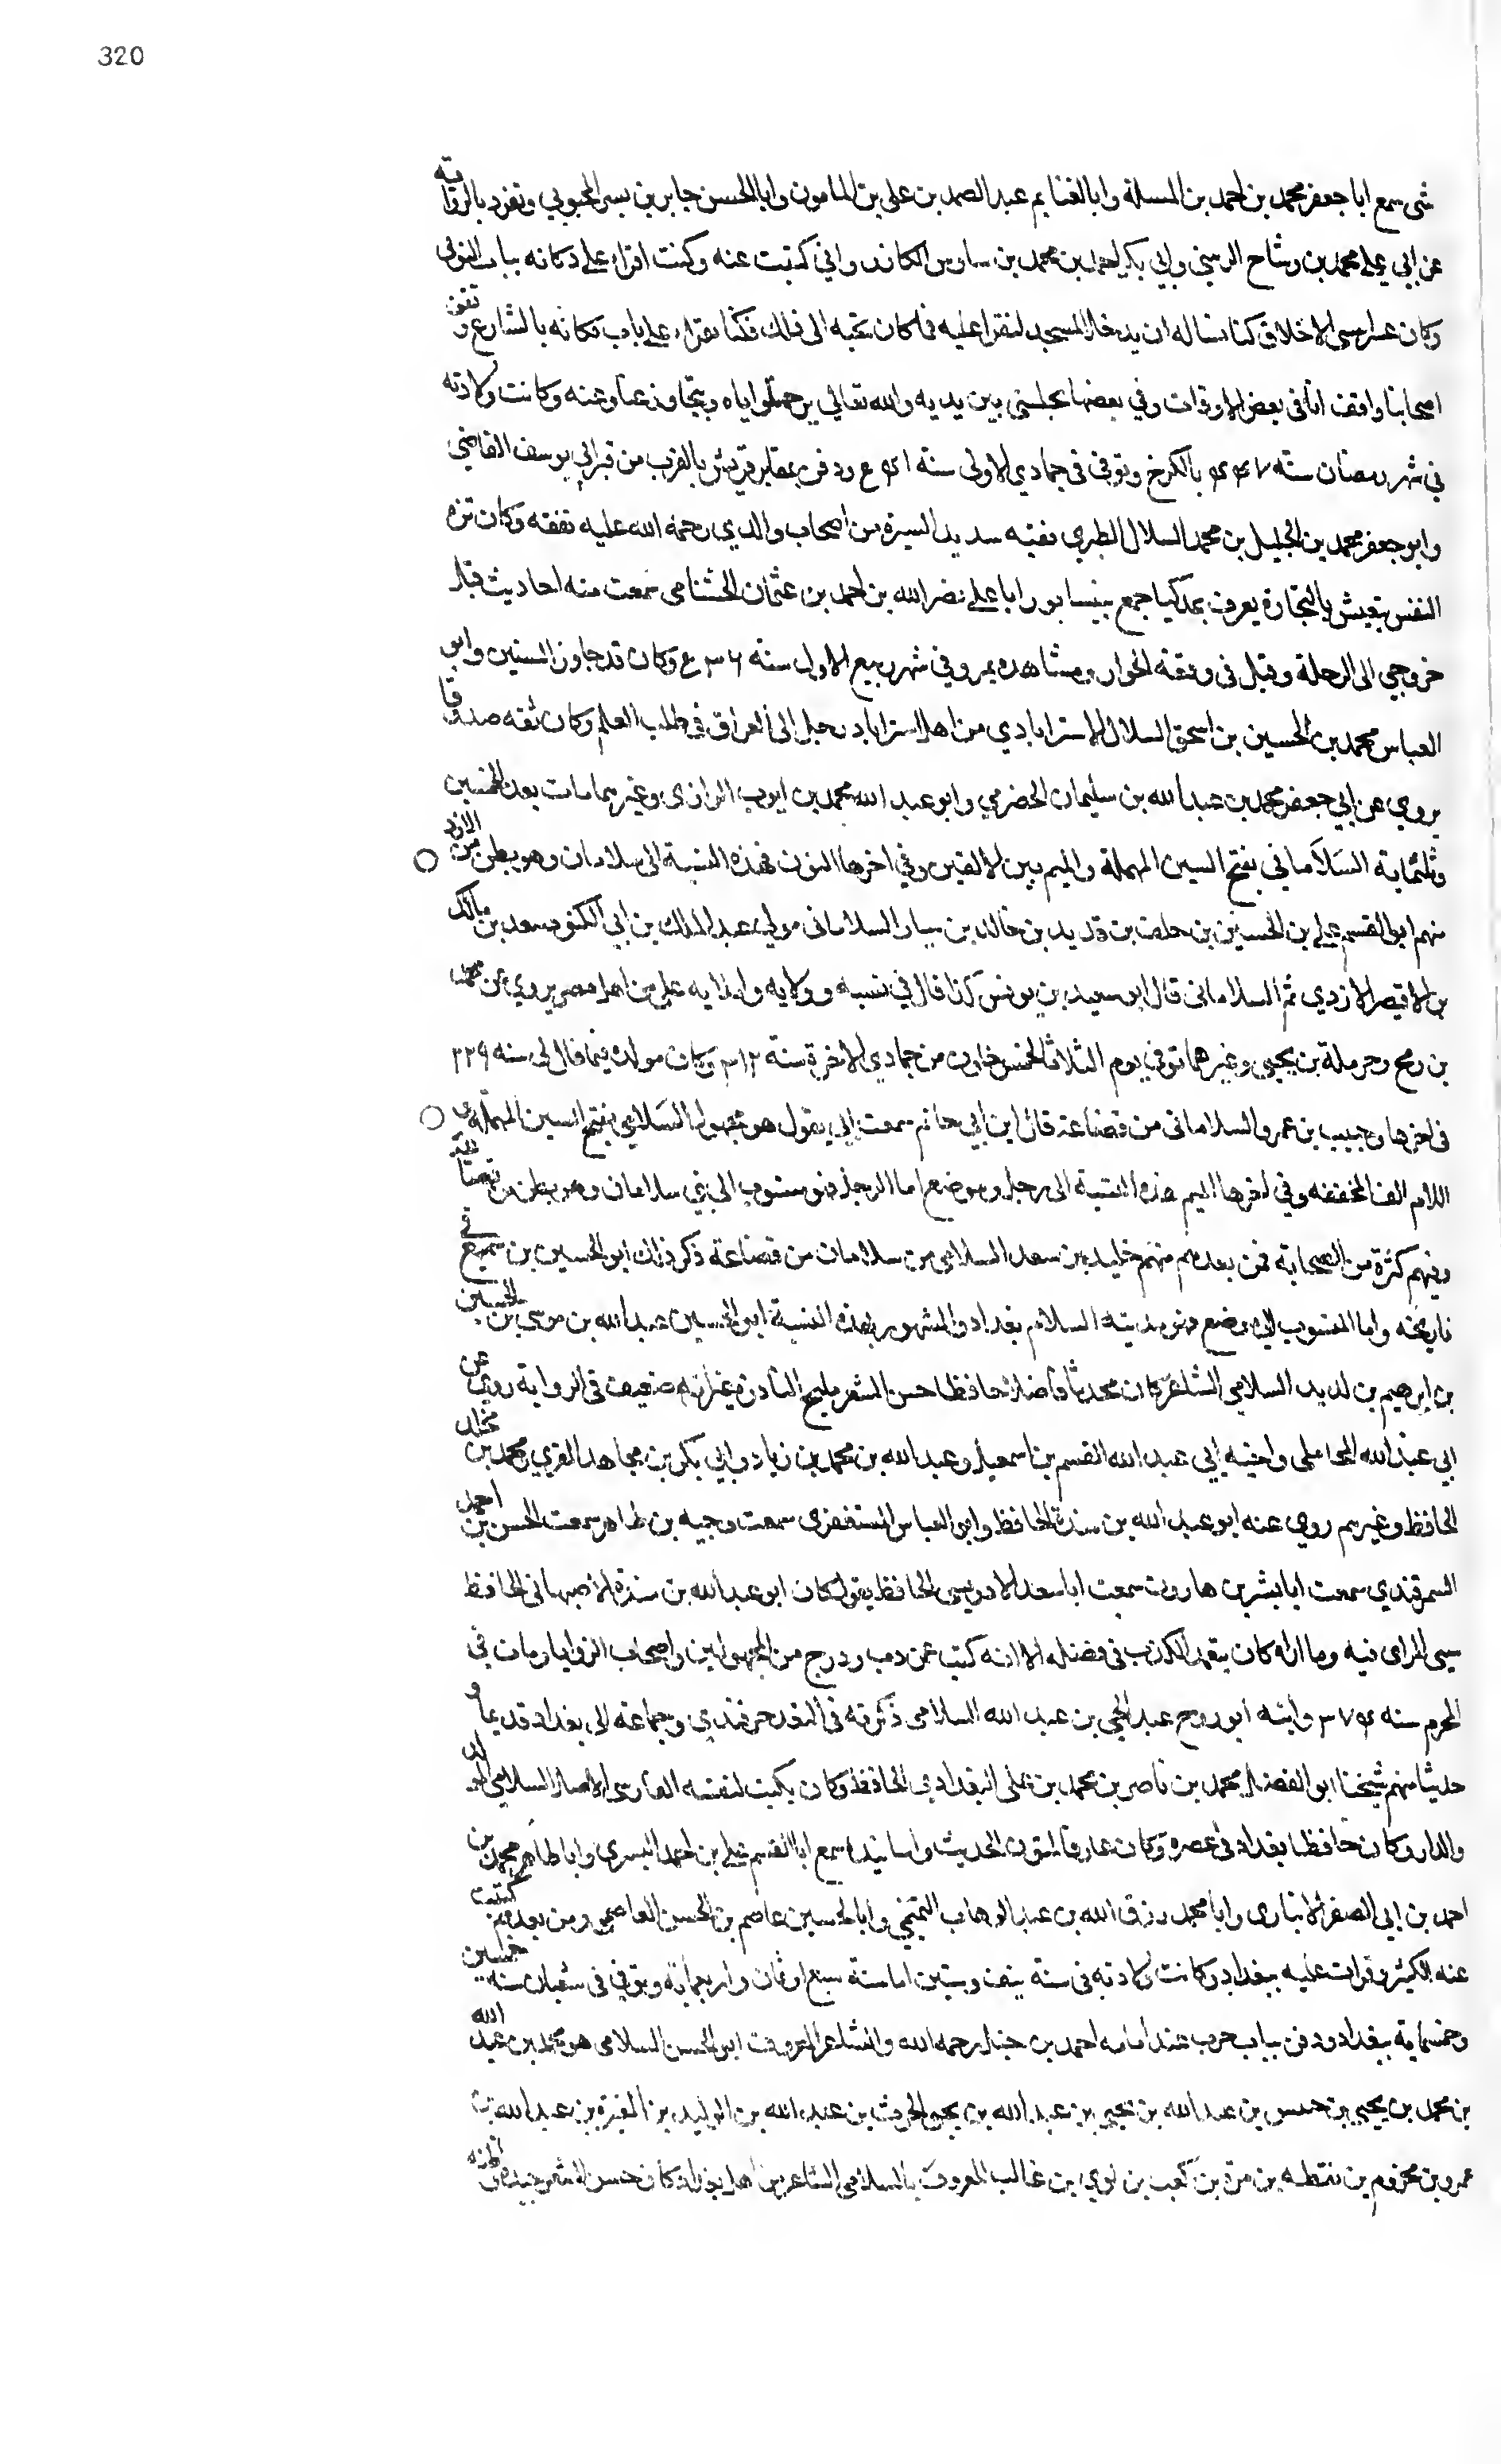 320
شى سمع ابا جعفر محمد بن احمد بن المسلمة وابا الغنايم عبد الصمد بن على بن المامون وابا الحسن جابر بن يسر المحبوبي وتفرد بالرواية
عن ابي على محمد بن وشاح الزينبي وابي بكر احمد بن محمد بن الكازرواني كتبت عنه وكنت اقراء على دكانه بباب النوبي
وكان عسر الاخلاق كنا نساله ان يدخل المسجد لنقرا عليه فما كان يجيبه الى ذلك فكنا نقراء على باب دكانه بالشارع و
اصحابنا واقف انا في بعض الاوقات وفي بعضها مجلسنى بين يديه والله تعالى يرحمنا واياه ويتجاوز عنا وعنه وكانت ولادته
في شهر رمضان سنة بالكرخ وتوفي في جمادي الاولى سنة ودفن بمقابر قريش بالقرب من قبر ابي يوسف القاضي
وابو جعفر محمد بن الجليل بن محمد السلال الطبري فقيه سديد السيرة من اصحاب والدي رحمة الله عليه تفقه وكان نزه
النفس يتعيش بالتجارة يعرف سمع بنيسابور ابا على نصر الله بن احمد بن عثمان الخشنامى سمعت منه احاديث قبل
خروجي الى الرحلة وقتل في وقعة الخوار ومشاهده بمرو في شهر ربيع الاول سنة وكان قد جاوز الستين وابو
العباس محمد بن الحسين بن اسحق السلال الاسترابادي من اهل استراباد رحل الى العراق في طلب العلم وكان ثقه صدوقا
يروي عن ابي جعفر محمد بن عبد الله بن سليمان الحضرمي وابو عبد الله محمد بن ايوب الرازى وغيرهما مات بعد الخمسين
وثلثماية السَلاَماني بفتح السين المهملة والميم بين الالفين وفي اخرها النون هذه النسبة الى سلامان وهو بطن من الازد
منهم ابو القسم على بن الحسين بن خلف بن قديد بن خالد بن سيار السلامانى مولى عبد الملك بن ابي الكنود سعد بن مالك
بن الاقيصر الازدي ثم السلامانى قال ابو سعيد بن يونس كذا قال في نسبه وولايه من اهل مصر يروي عن محمد
بن رمح وحرملة بن يحيى وغيرهما توفي يوم الثلاثا لخمس خلون من جمادي الاخرة سنة ٣١٢ وكان مولده فيما قال لى سنه ٢٢٩
في اخرها وحبيب بن عمرو السلامانى من قضاعة قال ابن ابي حاتم سمعت ابي يقول هو مجهول السَلامي بفتح السين المهملة
اللام الف المخففه وفي اخرها الميم هذه النسبة الى رجل وموضع اما الرجل فهو منسوب الى بني سلامان وهو بطن من قضاعة
وفيهم كثرة من الصحابة فمن بعدهم منهم خليد بن سعد السلامى من سلامان من قضاعة ذكر ذلك ابو الحسين بن سميع في
تاريخه واما المنسوب الى موضع فهو مدينة السلام بغداد والمشهور بهذه النسبة ابو الحسين عبد الله بن موسى بن الحسين
بن ابرهيم بن السلامى الشاعر كان محدثا فاضلا حافظا حسن الشعر مليح النادرة غير انه ضعيف في الرواية روى عن
ابي عبد الله المحاملى واخيه ابي عبد الله القسم بن اسمعيل وعبد الله بن محمد بن زياد وابي بكر بن مجاهد المقري ومحمد بن مخلد
الحافظ وغيرهم روى عنه ابو عبد الله بن مندة الحافظ وابو العباس المستغفرى سمعت وجيه بن طاهر سمعت الحسن بن احمد
السمرقندي سمعت ابا بشر بن هارون سمعت ابا سعد الادريسى الحافظ يقول كان ابو عبد الله بن مندة الاصبهانى الحافظ
سيئ الراى فيه وما اراه كان يتعمد الكذب في فضله الا انه كتب عمن دب ودرج من المجهولين واصحاب الزوايا ومات في
المحرم سنه وابنه ابو روح عبد الحي بن عبد الله السلامى ذكرته في وجماعة الى بغداد قديما و
حديثا منهم شيخنا ابو الفضل محمد بن ناصر بن محمد بن على البغدادي الحافظ وكان يكتب لنفسه الفارسى الاصل السلامي المولد
والدار وكان حافظ بغداد في عصره وكان عارفا بمتون الحديث واسانيده سمع ابا القسم على بن احمد البسرى وابا طاهر محمد بن
احمد بن ابي الصقر الانبارى وابا محمد رزق الله بن عبد الوهاب التميمي وابا الحسين عاصم بن الحسن العاصمى ومن بعدهم كتبت
عنه الكثير وقرات عليه ببغداد وكانت ولادته في سنة نيف وستين اما سنة سبع او ثمان واربعماية وتوفي في شعبان سنه خمسين
وخمسماية ببغداد ودفن بباب حرب عند امامه احمد بن حنبل رحمه الله والشاعر المعروف ابو الحسن السلامى هو محمد بن عبد الله
بن محمد بن يحيى بن بن عبد الله بن يحيى بن عبد الله بن الحرث بن عبد الله بن الوليد بن المغيرة بن عبد الله بن
عمرو بن مخزوم بن يقظه بن مرة بن كعب بن لوي بن غالب المعروف بالسلامى الشاعر من اهل بغداد كان حسن الشعر جيده